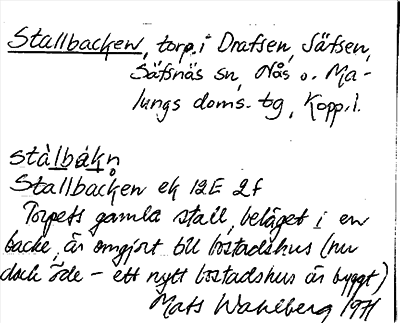 Stallbacken, torp i Drafsen, Säfsen,
Säfsnäs sn, Nås o. Ma-
lungs doms. tg, Kopp. l.
stàlbákn̥
Stallbacken ek 12E 2f
Torpets gamla stall, beläget i en
backe, är omgjort till bostadshus (nu
dock öde – ett nytt bostadshus är byggt)
Mats Wahlberg 1971